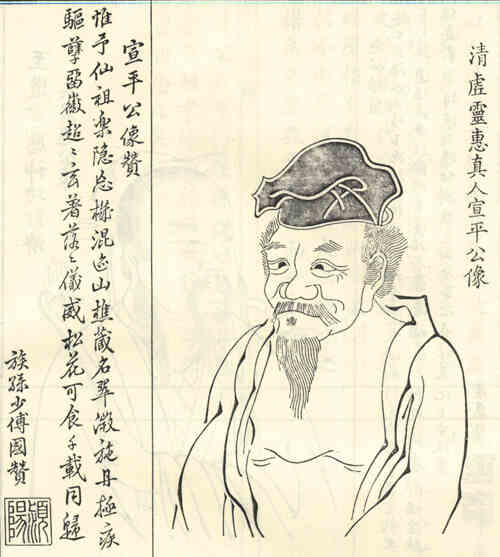 清虛靈惠真人宣平公像
宣平公像贊
惟予仙祖樂隐忘機混迹山樵藏名翠微施丹極疾
驅孽留徽超〻玄著落〻儀威松花可食千載同歸
族孫少傅國贊
潁陽